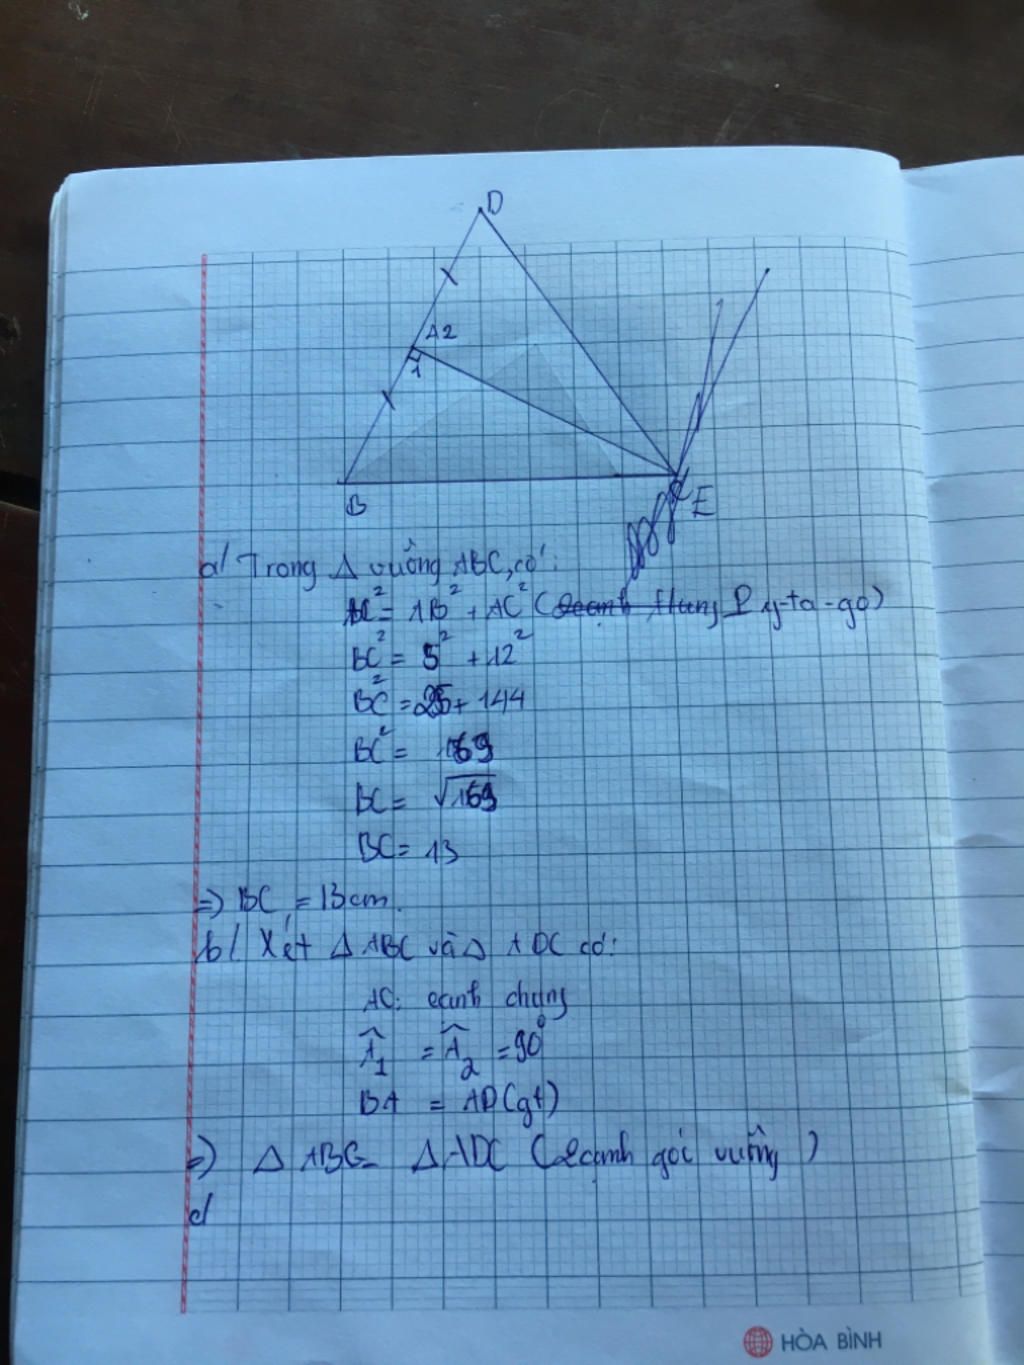 D
A 2
1
B
E
a/ Trong Δ vuông ABC, có:
BC² = AB² + AC² (Py-ta-go)
BC² = 5² + 12²
BC² = 25 + 144
BC² = 169
BC = √169
BC = 13
=> BC = 13 cm.
b/ Xét Δ ABC và Δ ADC có:
AC: cạnh chung
Â₁ = Â₂ = 90⁰
BA = AD (gt)
=> Δ ABC = Δ ADC (2 cạnh gói vuông)
c/
HÒA BÌNH